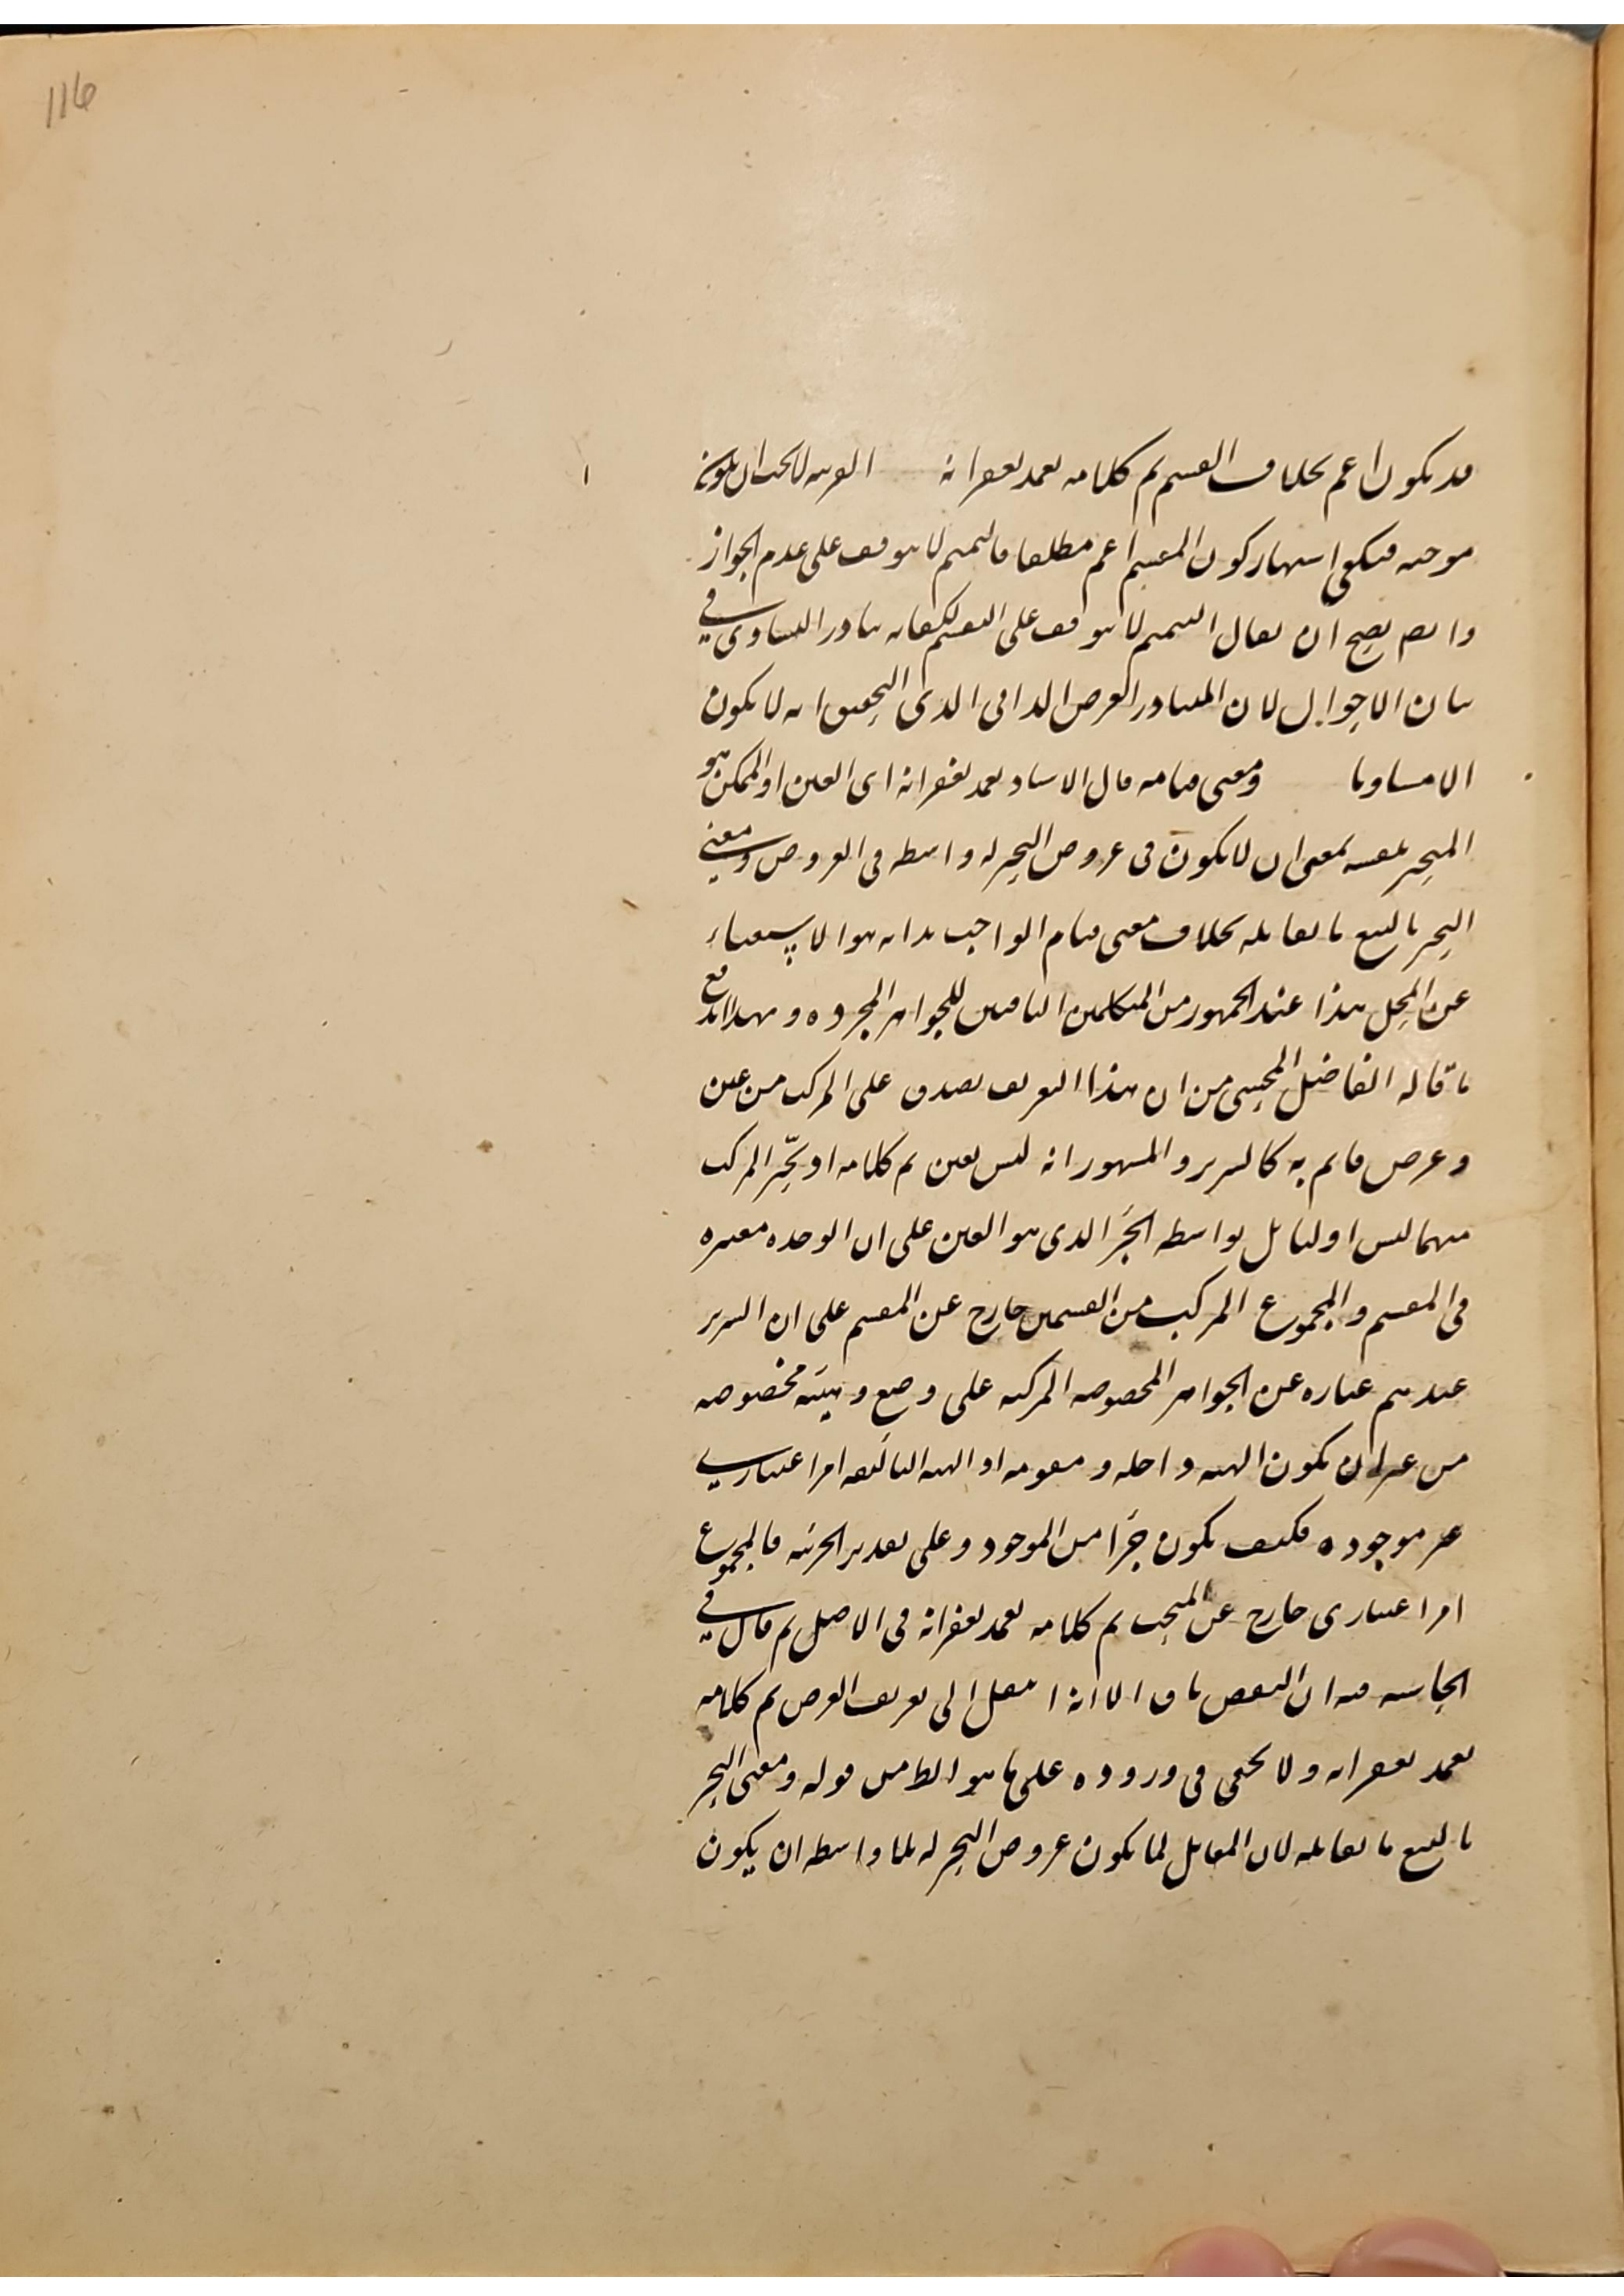 116
قد يكون اعم بخلاف القسم تم كلامه تغمد بغفرانه القرينه لا يجب ان يكون
موجبه فيكفي اشتهار كون المقسم اعم مطلقا فالتعميم لا يتوقف على عدم الجواز
وايضا يصح ان يقال التعميم لا يتوقف على التقسيم لكفايه تبادر التساوي في
بيان الاحوال لان المتبادر العرض الذاتي الذي التحقيق انه لا يكون
الا مساويا ومعنى قيامه قال الاستاد تغمد بغفرانه اى العين او الممكن هو
المتحيز بنفسه بمعنى ان لا يكون فى عروض التحيز له واسطه فى العروض ومعنى
التحيز بالتبع ما يقابله بخلاف معنى قيام الواجب بذاته هو الاستغناء
عن المحل هذا عند الجمهور من المتكلمين النافين للجواهر المجرده وبهذا اندفع
ما قاله الفاضل المحشى من ان هذا التعريف يصدق على المركب من عين
وعرض قايم به كالسرير والمشهور انه ليس بعين تم كلامه اذ تحيز المركب
منهما ليس اوليا بل بواسطه الجزء الذى هو العين على ان الوحده معتبره
فى المقسم والمجموع المركب من القسمين خارج عن المقسم على ان السرير
عندهم عباره عن الجواهر المخصوصه المركبه على وضع وهيئه مخصوصه
من غير ان يكون الهيئه داخله ومقومه اذ الهيئه التاليفيه امر اعتباري
غير موجوده فكيف يكون جزءا من الموجود وعلى تقدير الجزئيه فالمجموع
امر اعتبارى خارج عن المبحث تم كلامه تغمد بغفرانه فى الاصل ثم قال في
الحاشيه فيه ان النقض باق الا انه انتقل الى تعريف العرض تم كلامه
تغمد بغفرانه ولا يخفى فى وروده على ما هو الظ من قوله ومعنى التحيز
بالتبع ما يقابله لان المقابل لما يكون عروض التحيز له بلا واسطه ان يكون